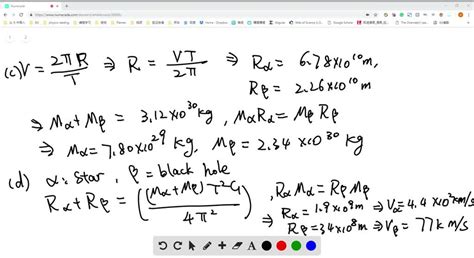 (c) V = 2πR/T ⇒ R = VT/2π ⇒ Rα = 6.78×10¹⁰ m,
Rβ = 2.26×10¹⁰ m
⇒ Mα+Mβ = 3.12×10³⁰ kg, MαRα = MβRβ
⇒ Mα = 7.80×10²⁹ kg, Mβ = 2.34×10³⁰ kg
(d) α: star, β = black hole
Rα+Rβ = ((Mα+Mβ)T²G/4π²), RαMα = RβMβ
⇒ Rα = 1.9×10⁹ m ⇒ Vα = 4.4×10² km/s
Rβ = 34×10⁸ m ⇒ Vβ = 77 km/s